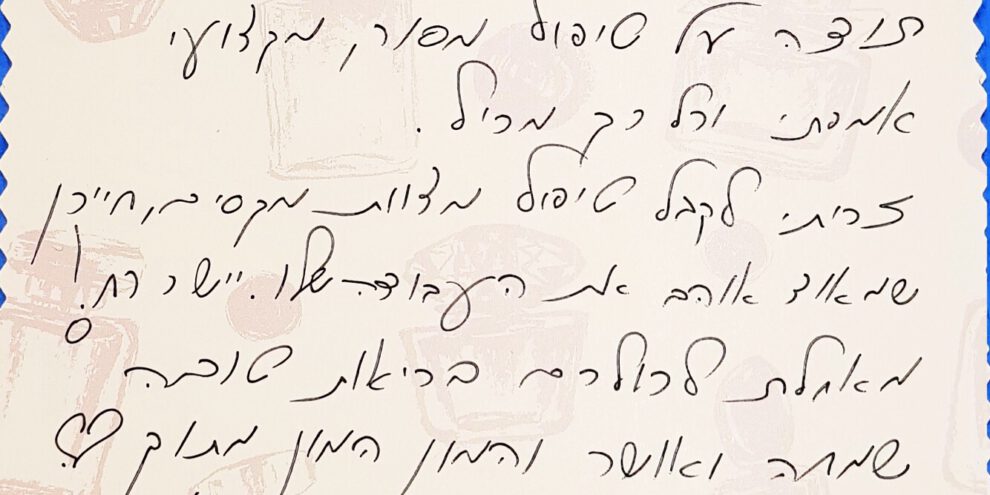 תודה על טיפול מסור, מקצועי
אמפתי וכל כך מכיל.
זכיתי לקבל טיפול מצוות מקסים, חייכן
שמאוד אוהב את העבודה שלו. יישר כח!
מאחלת לכולכם בריאות טובה
שמחה ואושר והמון המון מתוק ♡